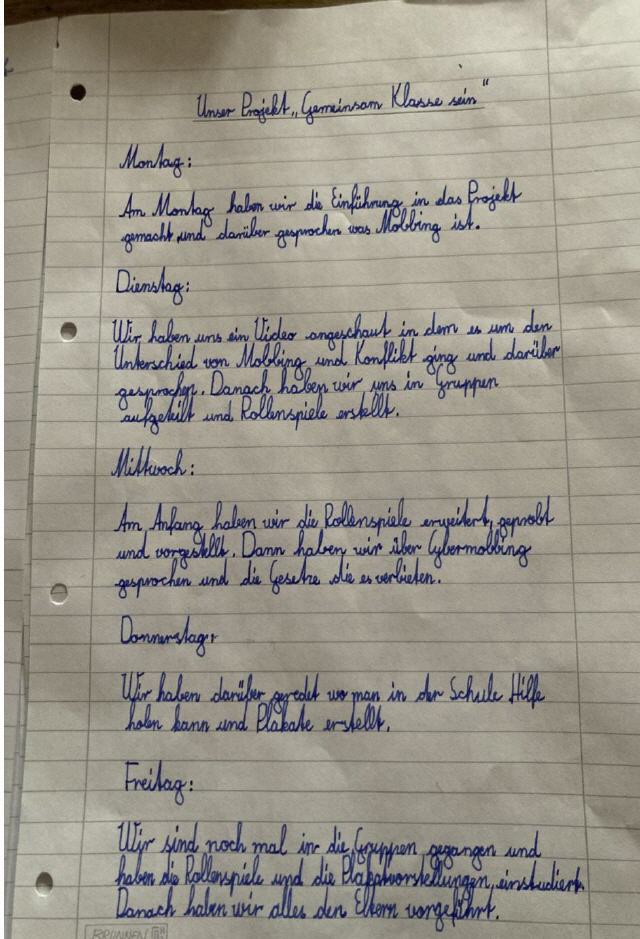 Unser Projekt „Gemeinsam Klasse sein"
Montag:
Am Montag haben wir die Einführung in das Projekt
gemacht und darüber gesprochen was Mobbing ist.
Dienstag:
Wir haben uns ein Video angeschaut in dem es um den
Unterschied von Mobbing und Konflikt ging und darüber
gesprochen. Danach haben wir uns in Gruppen
aufgeteilt und Rollenspiele erstellt.
Mittwoch:
Am Anfang haben wir die Rollenspiele erweitert, geprobt
und vorgestellt. Dann haben wir über Cybermobbing
gesprochen und die Gesetze die es verbieten.
Donnerstag:
Wir haben darüber geredet wo man in der Schule Hilfe
holen kann und Plakate erstellt.
Freitag:
Wir sind noch mal in die Gruppen gegangen und
haben die Rollenspiele und die einstudiert.
Danach haben wir alles den Eltern vorgeführt.
BRUNNEN